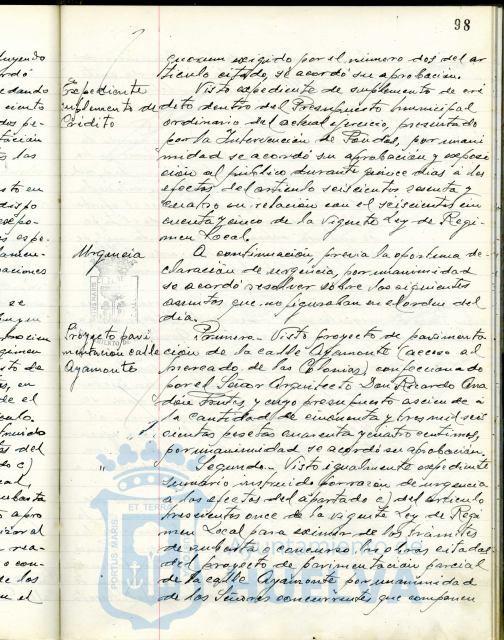 98
quorum exigido por el número dos del ar
tículo citado, se acordó su aprobación.
Expediente
suplemento de
Crédito
Visto expediente de suplemento de cré
dito dentro del Presupuesto municipal
ordinario del actual ejercicio, presentado
por la Intervención de Fondos, por unani
midad se acordó su aprobación y exposi
ción al público durante quince días a los
efectos del artículo seiscientos ochenta y
cuatro en relación con el seiscientos cin
cuenta y cinco de la vigente Ley de Regi
men Local.
Urgencia
A continuación, previa la oportuna de-
claración de urgencia, por unanimidad
se acordó resolver sobre los siguientes
asuntos que no figuraban en el orden del
día.
Proyecto pavi
mentación calle
Ayamonte
Primero.- Visto proyecto de pavimenta
ción de la calle Ayamonte (acceso al
mercado de las Colonias) confeccionado
por el Señor Arquitecto Don Ricardo Ana
don Frutos, y cuyo presupuesto asciende a
la cantidad de cincuenta y tres mil seis
cientas pesetas cuarenta y cuatro centimos,
por unanimidad se acordó su aprobación.
Segundo.- Visto igualmente expediente
sumario instruido por razón de urgencia
a los efectos del apartado c) del artículo
trescientos once de la vigente Ley de Regi
men Local para eximir de los trámites
de subasta o concurso las obras citadas
del proyecto de pavimentación parcial
de la calle Ayamonte por unanimidad
de los Señores concurrentes que componen
PORTUS MARIS
ET TERRAE
Ayuntamiento de